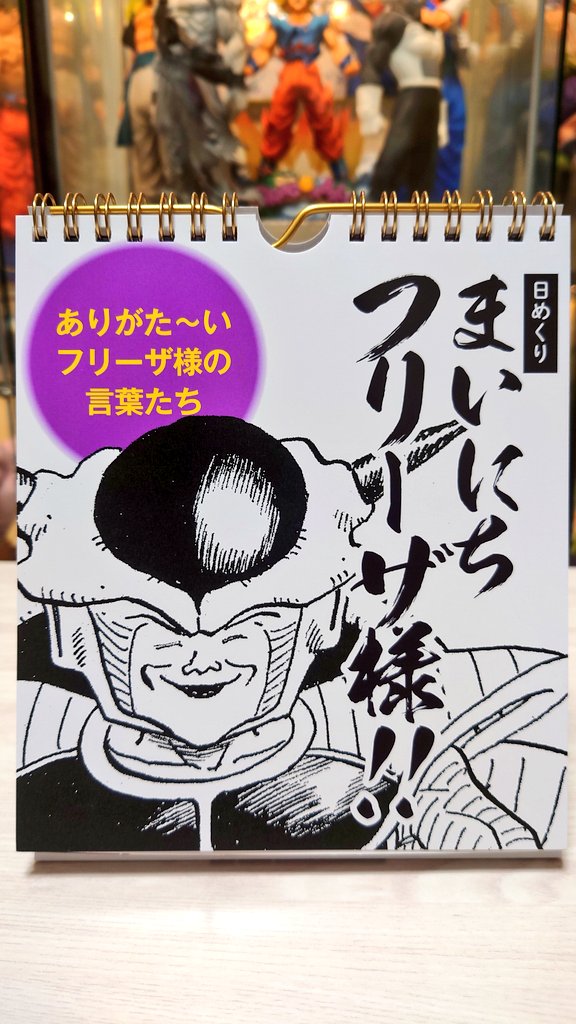 日めくり
まいにち
フリーザ様!!
ありがた〜い
フリーザ様の
言葉たち